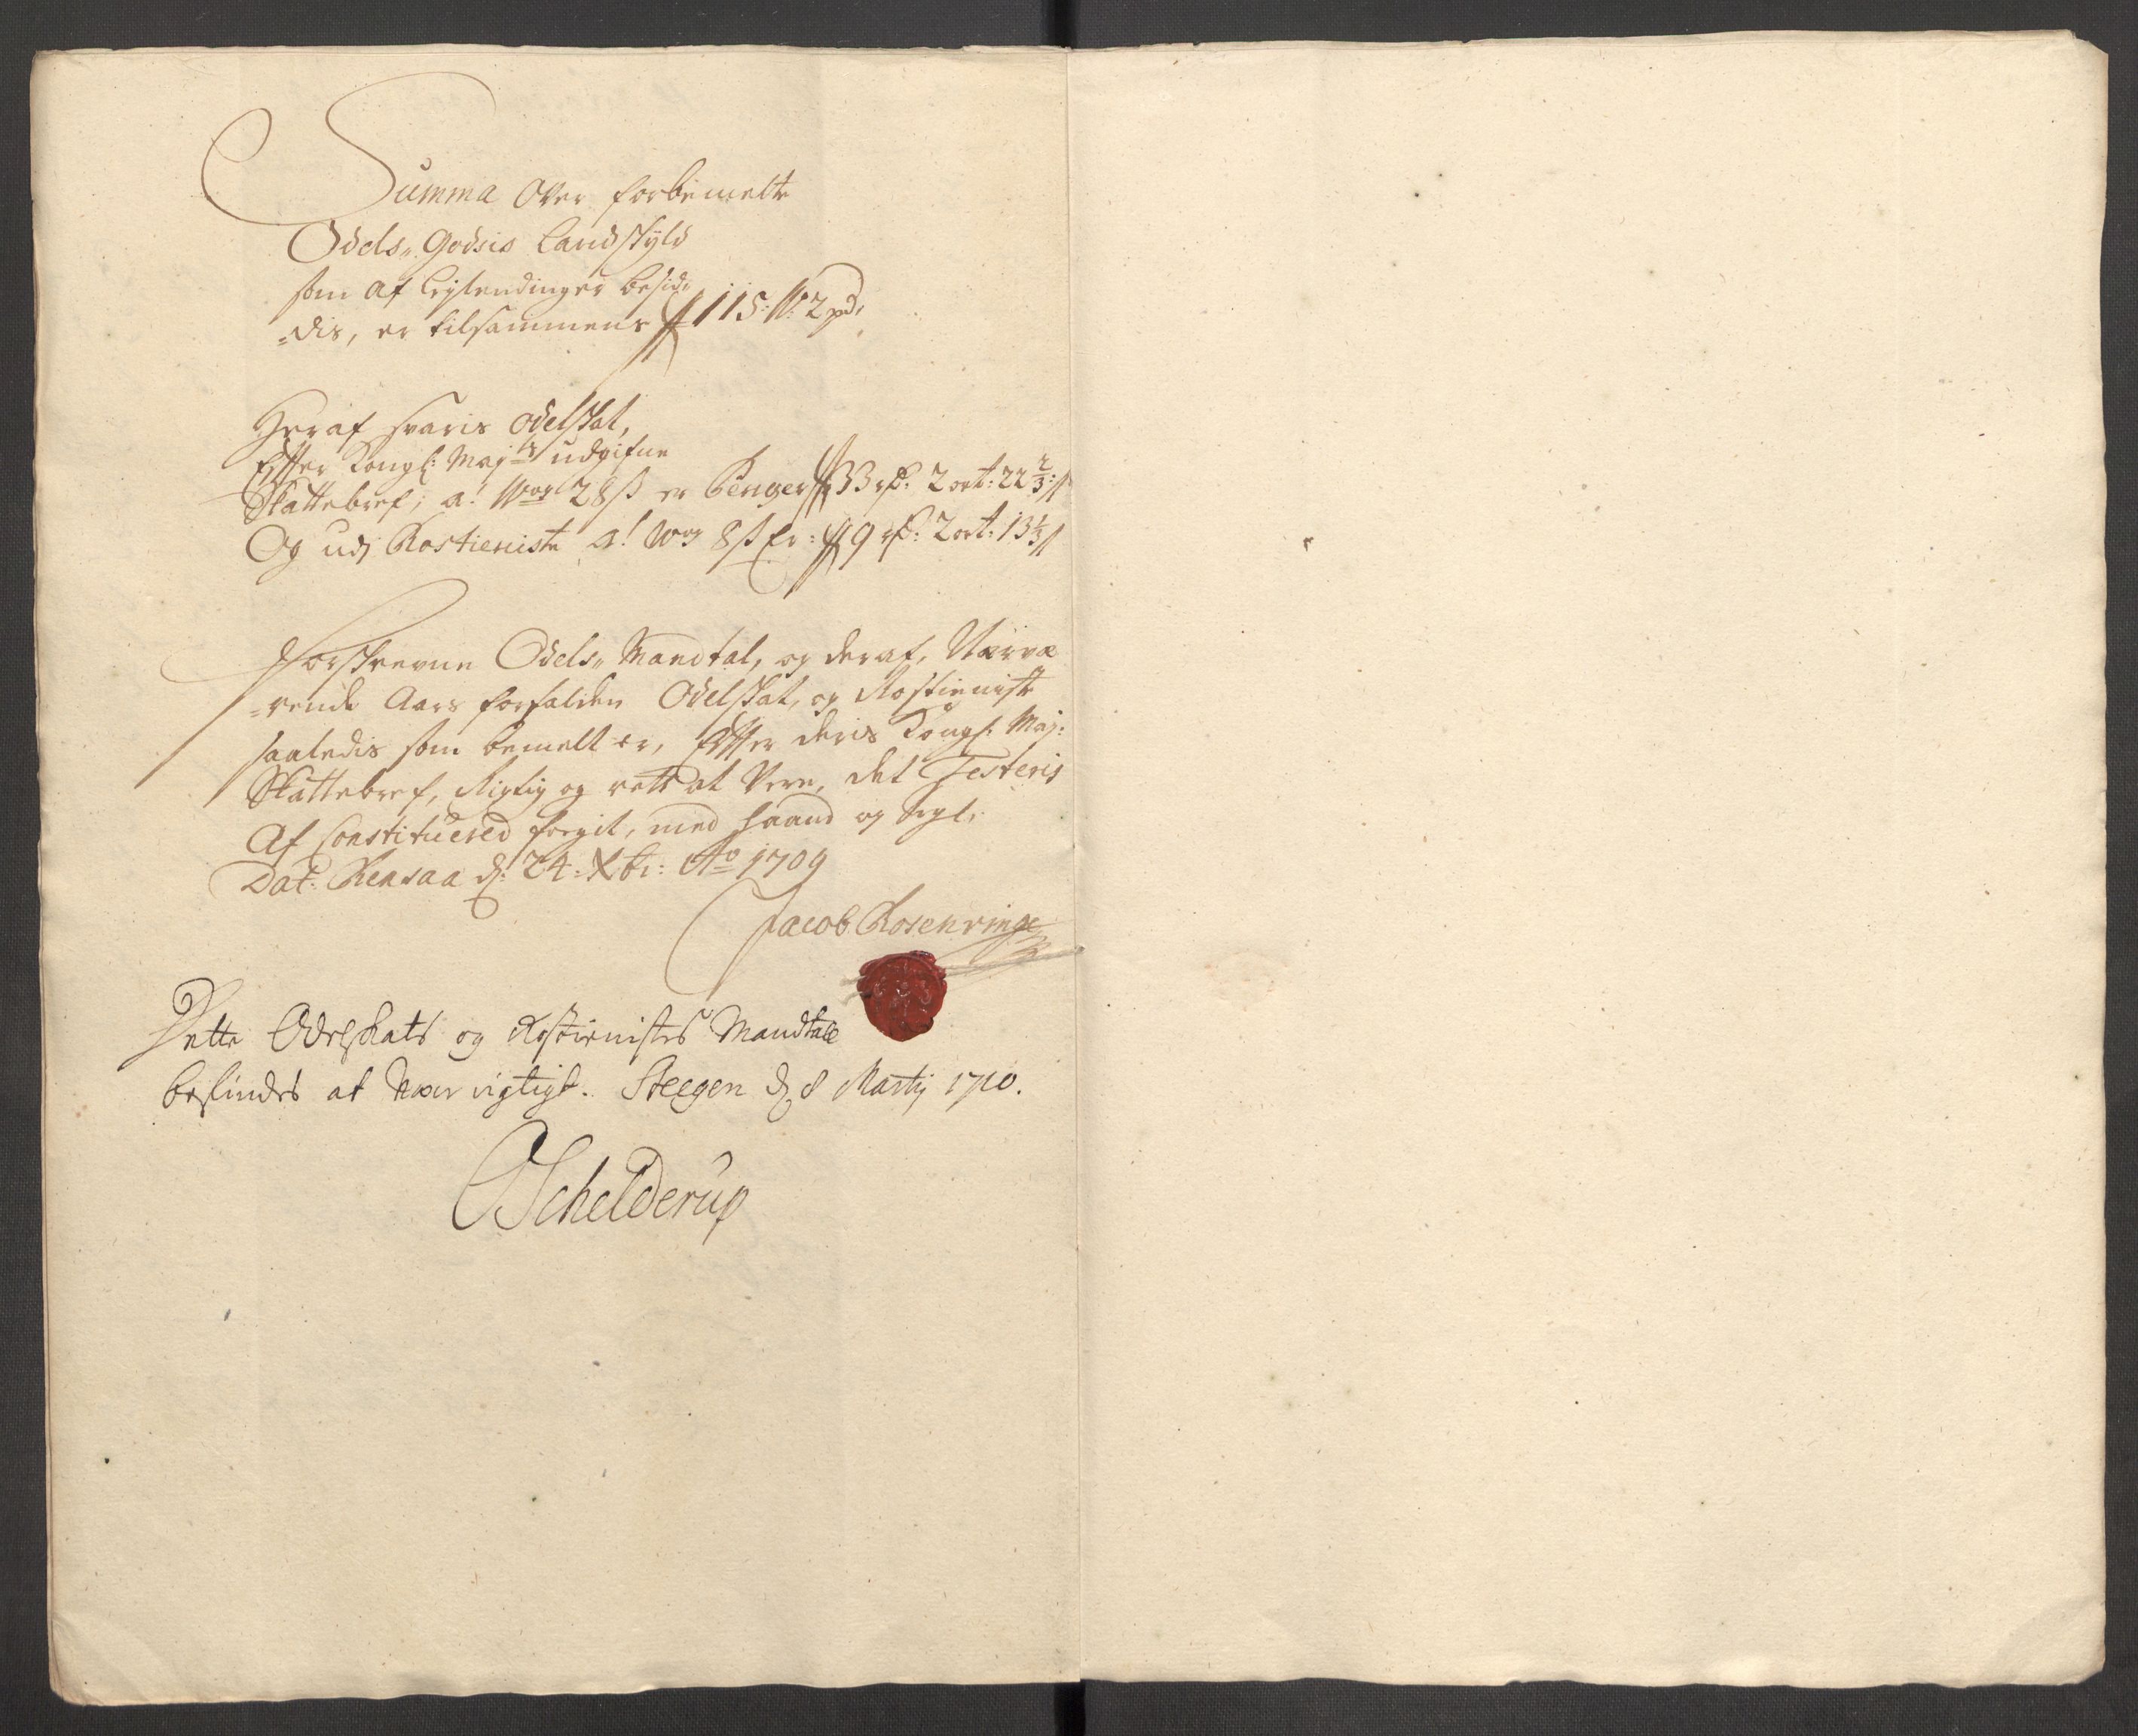 Summa Over forbemelte
Odels„ Godsis Landskyld
som af leylendinger besid„
=dis, er tilsammens 115: W: 2 pd,
Heraf svaris Odelskat,
Effter Kongl: Maj:ts udgifne
Skattebref, a! Wog 28 ß er Penger 33 rd: 2 ort: 22 2/3: ß
Og udj Rostieniste a! Wog 8 ß Er: 9 rd: 2 ort: 13 1/3 ß
Forskrevne Odels„ Mandtal, og deraf, Nærvæ
=rende Aars forfalden Odelskat, og Rostieniste
saaledis som bemelt er, Effter deris Kongl. Maj:
Skattebref, Rigtig og rett at Vere, det Testeris
Af Constituered foegit, med haand og Segl,
Dat: Rensaa d: 24: Xbr: Ao 1709
Jacob Rosenringe
Dette Odelskats og Rostienistes Mandtall
befindes at være rigtigt. Steegen d. 8 Martij 1710.
Schelderup